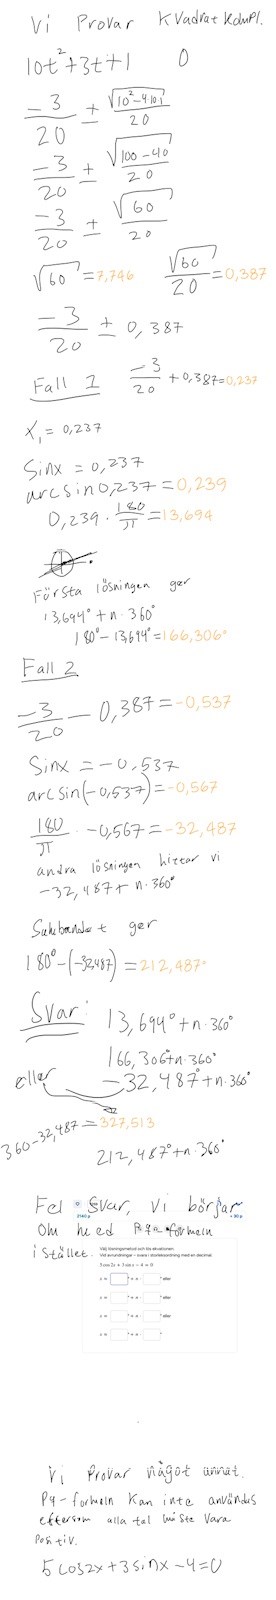 Vi Provar Kvadrat kompl.
10t²+3t+1 0
-3/20 ± √(10²-4·10·1)/20
-3/20 ± √(100-40)/20
-3/20 ± √60/20
√60 = 7,746 √60/20 = 0,387
-3/20 ± 0,387
Fall 1 -3/20 + 0,387 = 0,237
x₁ = 0,237
Sinx = 0,237
arcsin 0,237 = 0,239
0,239 · 180/π = 13,694
Första lösningen ger
13,694° + n·360°
180° - 13,694° = 166,306°
Fall 2
-3/20 - 0,387 = -0,537
Sinx = -0,537
arcsin(-0,537) = -0,567
180/π · -0,567 = -32,487
andra lösningen hittar vi
-32,487 + n·360°
Sambandet ger
180° - (-32,487) = 212,487°
Svar: 13,694° + n·360°
166,306° + n·360°
eller -32,487° + n·360°
360 - 32,487 = 327,513
212,487° + n·360°
Fel svar, vi börjar
Om med P.q. formeln
istället.
Välj lösningsmetod och lös ekvationen
Vid avrundningar – svara i storleksordning med en decimal.
5 cos 2x + 3 sin x − 4 = 0
x = ° + n · ° eller
x = ° + n · ° eller
x = ° + n · ° eller
x = ° + n · °
Vi Provar något annat.
Pq-formeln kan inte användas
eftersom alla tal måste vara
positiv.
5 cos2x + 3 sinx - 4 = 0